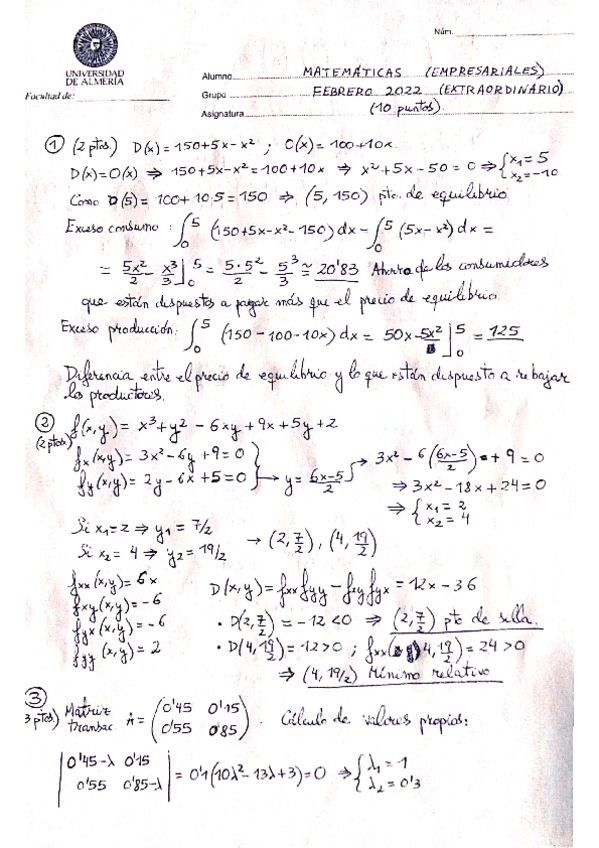 Núm.
UNIVERSIDAD
DE ALMERÍA
Facultad de:
Alumno MATEMÁTICAS (EMPRESARIALES)
Grupo FEBRERO 2022 (EXTRAORDINARIO)
Asignatura (10 puntos).
① (2 ptos.) D(x) = 150+5x-x² ; O(x) = 100+10x.
D(x)=O(x) ⇒ 150+5x-x²=100+10x ⇒ x²+5x-50=0 ⇒ { x₁=5 x₂=-10
Como O(5) = 100+10·5=150 ⇒ (5, 150) pto. de equilibrio
Exceso consumo: ∫₀⁵ (150+5x-x²-150) dx = ∫₀⁵ (5x-x²) dx =
= 5x²/2 - x³/3 ]₀⁵ = 5·5²/2 - 5³/3 ≈ 20'83 Ahorro de los consumidores
que están dispuestos a pagar más que el precio de equilibrio.
Exceso producción: ∫₀⁵ (150-100-10x) dx = 50x-5x² ]₀⁵ = 125
Diferencia entre el precio de equilibrio y lo que están dispuesto a rebajar
los productores.
② (2 ptos) f(x,y) = x³+y² - 6xy + 9x + 5y + 2
fx(x,y) = 3x²-6y+9=0
fy(x,y) = 2y-6x+5=0 } → y = 6x-5/2 → 3x² - 6(6x-5/2) + 9 = 0
⇒ 3x²-18x+24=0
⇒ { x₁ = 2 x₂ = 4
Si x₁=2 ⇒ y₁ = 7/2
Si x₂ = 4 ⇒ y₂ = 19/2 → (2, 7/2), (4, 19/2)
fxx(x,y) = 6x D(x,y) = fxx fyy - fxy fyx = 12x - 36
fxy(x,y) = -6 • D(2, 7/2) = -12 < 0 ⇒ (2, 7/2) pto de silla.
fyx(x,y) = -6 • D(4, 19/2) = 12 > 0 ; fxx(4, 19/2) = 24 > 0
fyy(x,y) = 2 ⇒ (4, 19/2) Mínimo relativo
③ 3 ptos) Matriz Transic. A = (0'45 0'15 0'55 0'85). Cálculo de valores propios:
|0'45-λ 0'15 0'55 0'85-λ| = 0'1(10λ²-13λ+3)=0 ⇒ { λ₁ = 1 λ₂ = 0'3